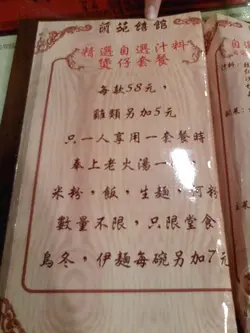 精選自選汁料
煲仔套餐
每款58元，
雞類另加5元
只一人享用一套餐時
奉上老火湯一碗，
米粉，飯，生麵，河粉
數量不限，只限堂食
烏冬，伊麵每碗另加7元
自選